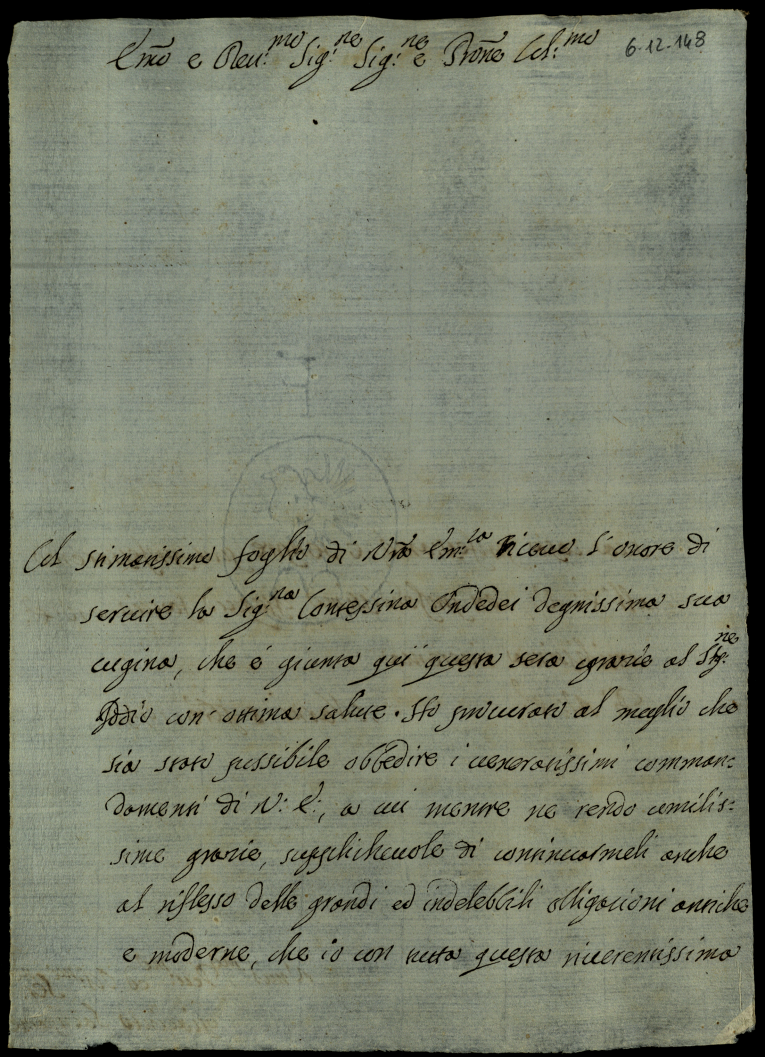 Em̃o e Reu:mo Sig:ne Sig:ne e Pr̃one Col:mo
6-12-148
Col stimatissimo foglio di Vr̃a Em:za riceuo l'onore di
seruire la Sig:na Contessina Ondedei degnissima sua
cugina, che è giunta qui questa sera grazie al Sig:ne
Iddio con ottima salute. Ho procurato al meglio che
sia stato possibile obbedire i ueneratissimi comman:
damenti di V: E:, a cui mentre ne rendo umilis:
sime grazie, supplicheuole di continuarmeli anche
al riflesso delle grandi ed indelebbili obligazioni antiche
e moderne, che io con tutta questa riuerentissima